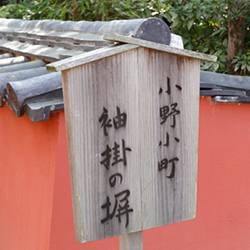 小野小町
袖掛の塀